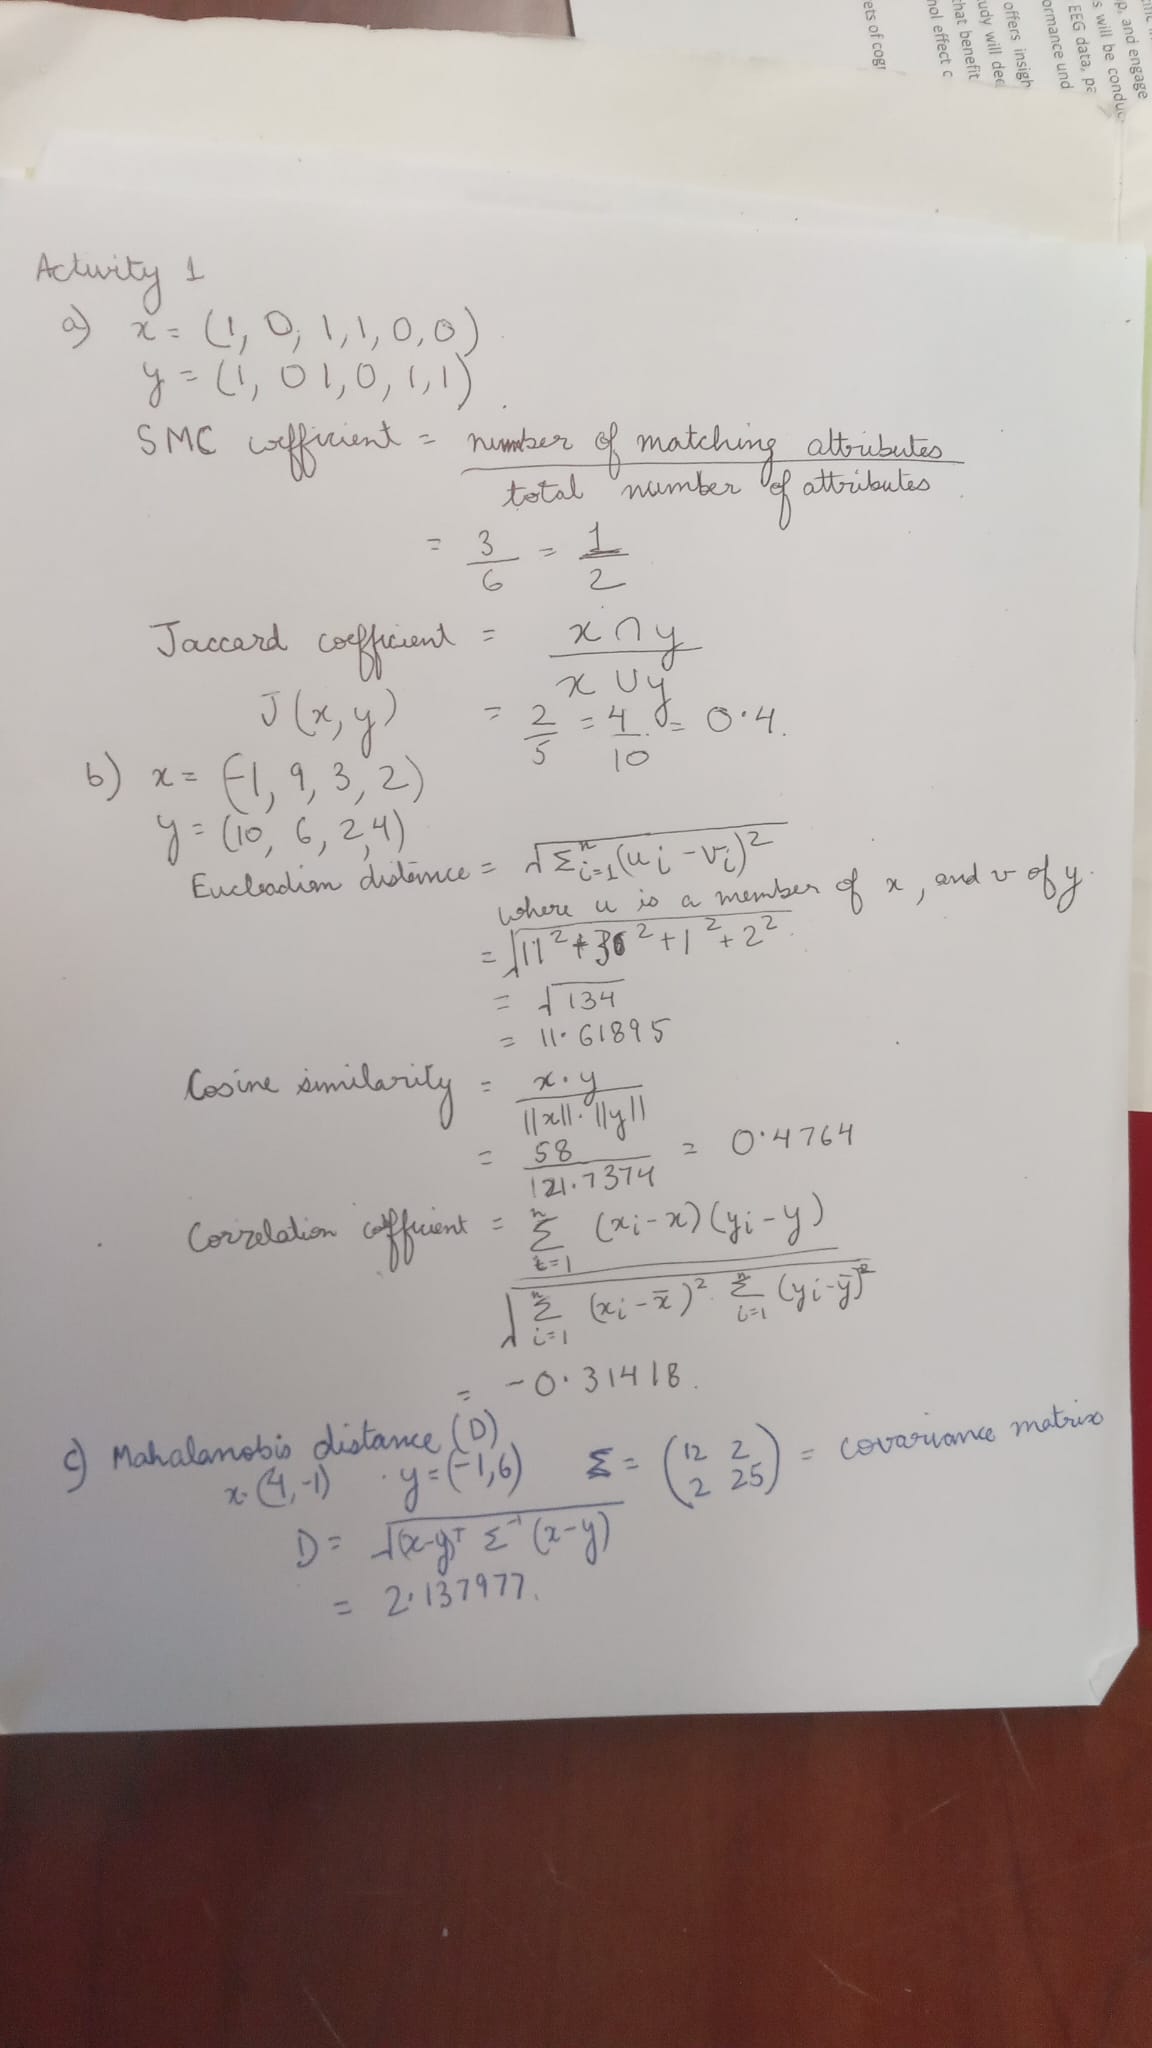 p, and engage
s will be conduc
EEG data, pa
ormance und
offers insigh
udy will dec
that benefit
nol effect c
ets of cogr
Activity 1
a) x = (1, 0, 1, 1, 0, 0)
y = (1, 0 1, 0, 1, 1)
SMC coefficient = number of matching attributes
total number of attributes
= 3/6 = 1/2
Jaccard coefficient = x ∩ y
x ∪ y
J(x, y) = 2/5 = 4/10 = 0.4.
b) x = (-1, 9, 3, 2)
y = (10, 6, 2, 4)
Eucleadian distance = √Σⁿᵢ₌₁(uᵢ - vᵢ)²
where u is a member of x, and v of y.
= √11² + 3² + 1² + 2²
= √134
= 11.61895
Cosine similarity = x . y
||x|| . ||y||
= 58/121.7374 = 0.4764
Correlation coefficient = Σⁿᵢ₌₁ (xᵢ - x)(yᵢ - y)
√Σⁿᵢ₌₁ (xᵢ - x̄)² . Σⁿᵢ₌₁ (yᵢ - ȳ)²
= -0.31418.
c) Mahalanobis distance (D)
x. (4, -1) . y = (-1, 6) Σ = (12 2 2 25) = covariance matrix
D = √(x-y)ᵀ Σ⁻¹ (x-y)
= 2.137977.